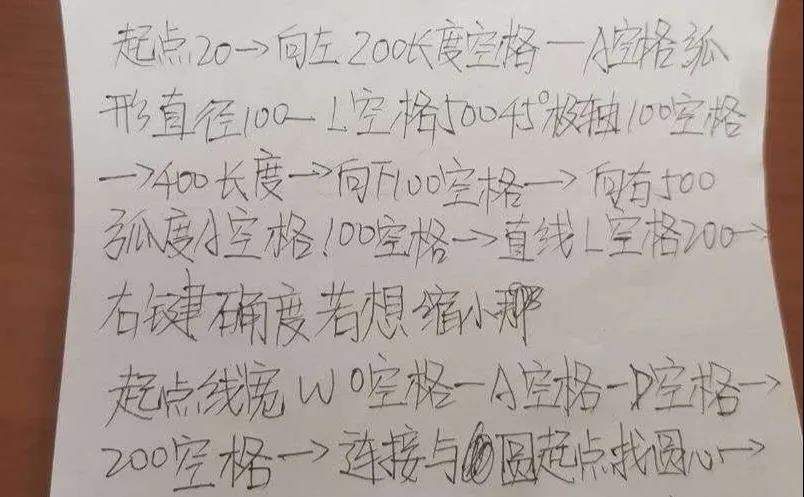 起点20→向左200长度空格—A空格弧
形直径100—L空格50045°极轴100空格
→400长度→向下100空格→向右500
弧度A空格100空格→直线L空格200→
右键确度若想缩小那
起点线宽W0空格—A空格—D空格→
200空格→连接与圆起点找圆心→